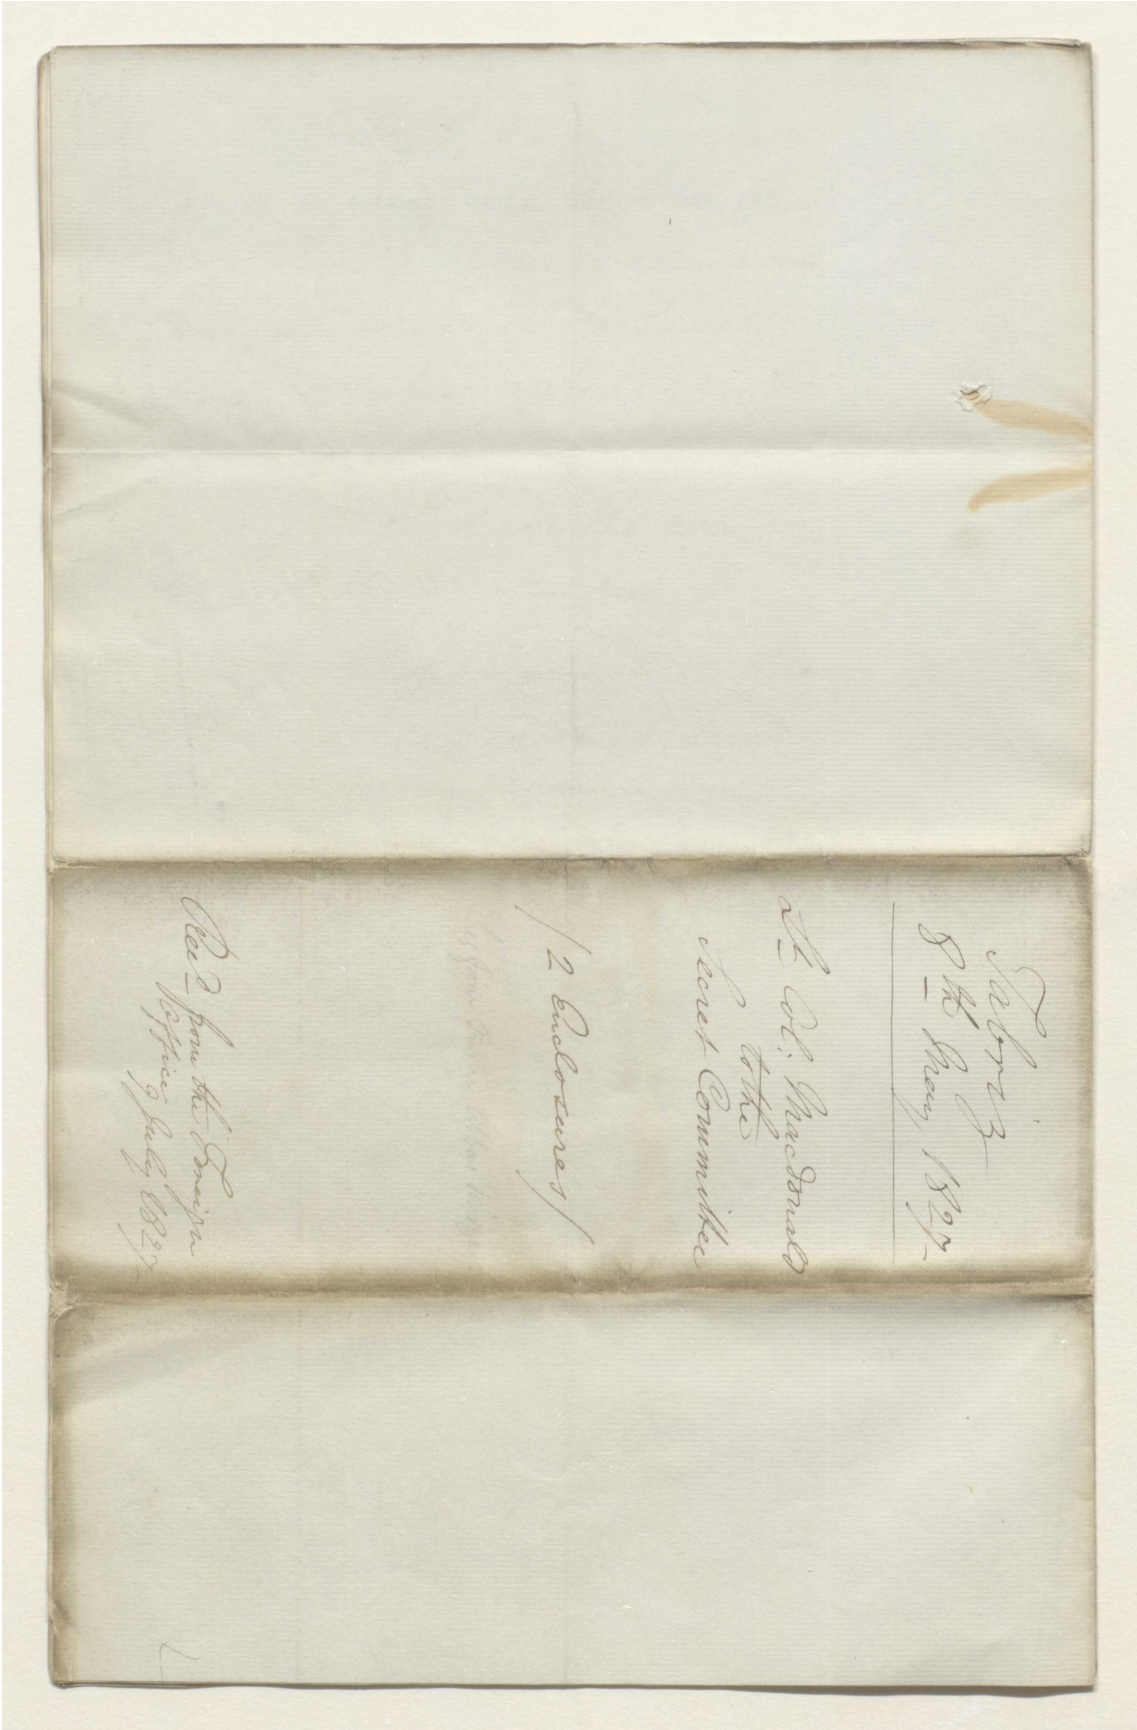 Tabriz
8th May 1827
Lt Col: Macdonald
to the
Secret Committee
/2 Enclosures/
Recd from the Foreign
Office 9 July 1827